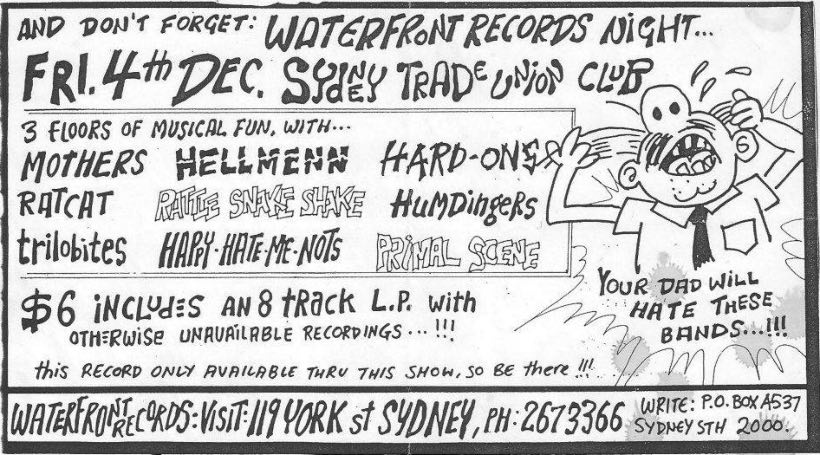 AND DON'T FORGET: WATERFRONT RECORDS NIGHT...
FRI. 4th DEC. SYDNEY TRADE UNION CLUB
3 FLOORS OF MUSICAL FUN, WITH...
MOTHERS HELLMENN HARD-ONS
RATCAT RATTLE SNAKE SHAKE HUMDINGERS
trilobites HAPY-HATE-ME-NOTS PRIMAL SCENE
$6 INCLUDES AN 8 tRACK L.P. with
OTHERWISE UNAVAILABLE RECORDINGS...!!!
this RECORD ONLY AVAILABLE THRU THIS SHOW, SO BE there!!!
YOUR DAD WILL
HATE THESE
BANDS...!!!
WATERFRONT RECORDS: VISIT: 119 YORK st SYDNEY, PH: 2673366
WRITE: P.O. BOX A537
SYDNEY STH 2000.